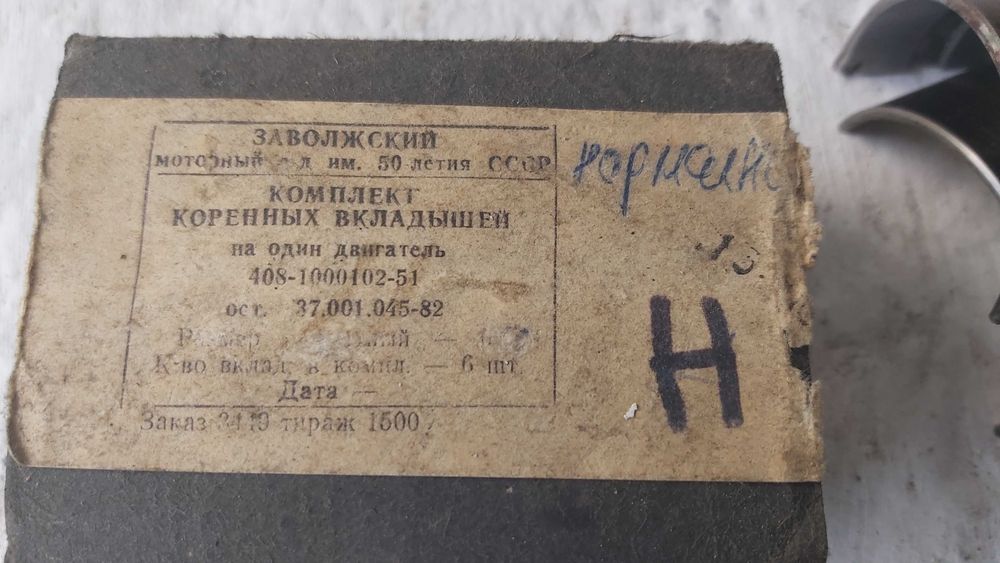 ЗАВОЛЖСКИЙ
моторный з-д им. 50-летия СССР
КОМПЛЕКТ
КОРЕННЫХ ВКЛАДЫШЕЙ
на один двигатель
408-1000102-51
ост. 37.001.045-82
Размер —
К-во вклад. в компл. — 6 шт.
Дата —
Заказ 3419 тираж 1500
нормаль
Н